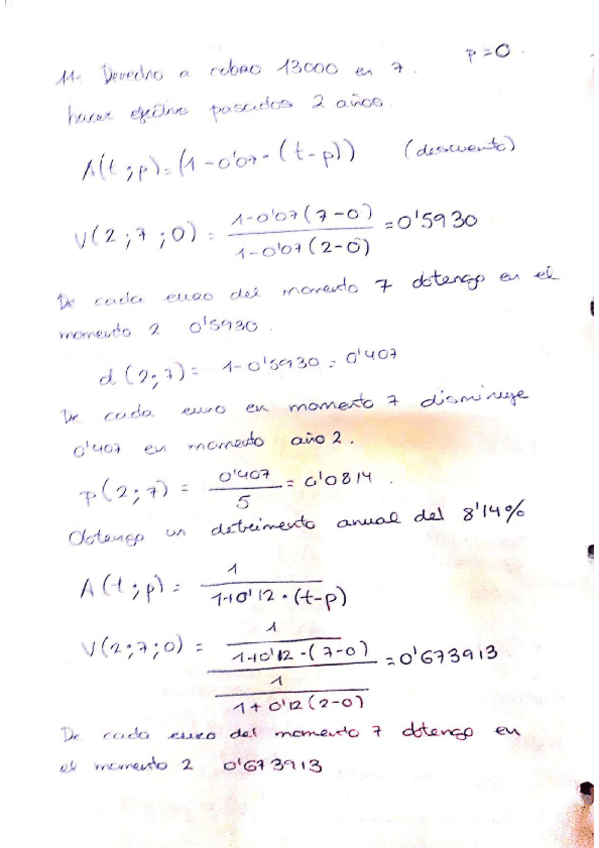 11- Derecho a cobro 13000 en 7. p=0.
hacer efectivo pasados 2 años.
A(t;p)=(1-0'07·(t-p)) (descuento)
V(2;7;0)= 1-0'07(7-0) / 1-0'07(2-0) =0'5930
De cada euro del momento 7 obtengo en el
momento 2 0'5930.
d(2;7)= 1-0'5930=0'407
De cada euro en momento 7 disminuye
0'407 en momento año 2.
p(2;7)= 0'407 / 5 =0'0814.
Obtengo un detrimento anual del 8'14%
A(t;p)= 1 / 1+0'12·(t-p)
V(2;7;0)= 1 / 1+0'12·(7-0) / 1 / 1+0'12(2-0) =0'673913.
De cada euro del momento 7 obtengo en
el momento 2 0'673913